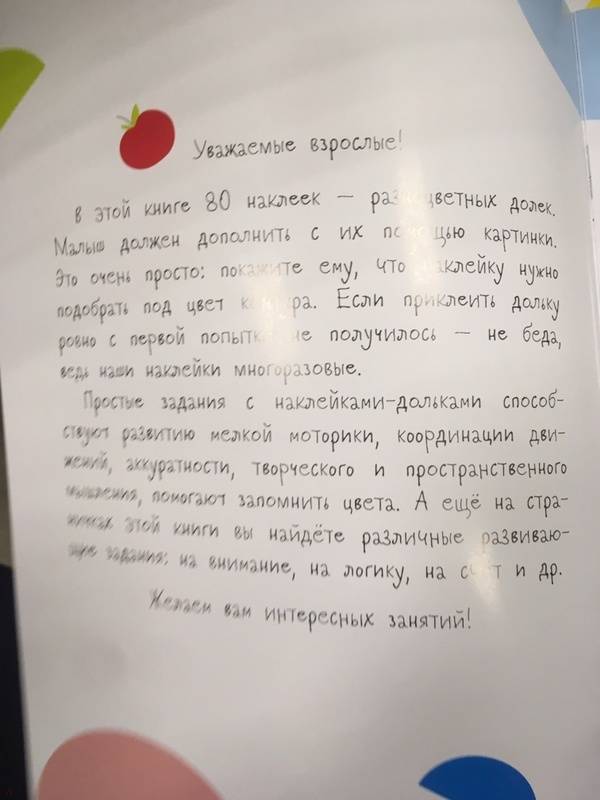 Уважаемые взрослые!
В этой книге 80 наклеек — разноцветных долек.
Малыш должен дополнить с их помощью картинки.
Это очень просто: покажите ему, что наклейку нужно
подобрать под цвет контура. Если приклеить дольку
ровно с первой попытки не получилось — не беда,
ведь наши наклейки многоразовые.
Простые задания с наклейками-дольками способ-
ствуют развитию мелкой моторики, координации дви-
жений, аккуратности, творческого и пространственного
мышления, помогают запомнить цвета. А ещё на стра-
ничках этой книги вы найдёте различные развиваю-
щие задания: на внимание, на логику, на счёт и др.
Желаем вам интересных занятий!